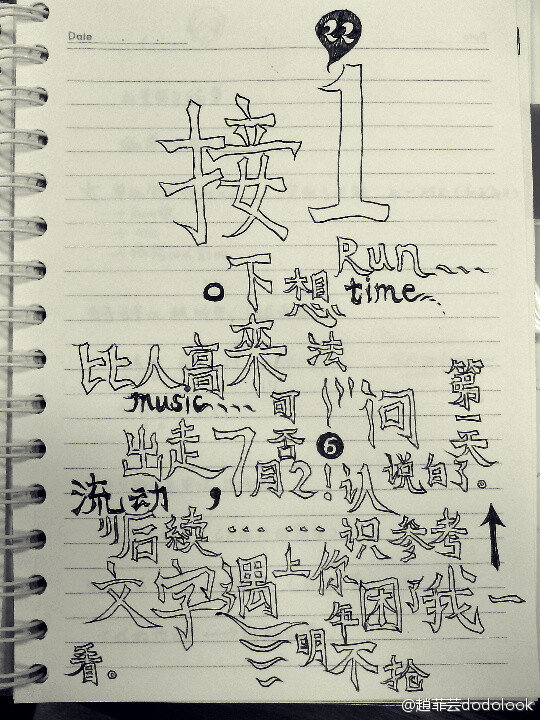 Date
22
接1
Run....
。下想 time..
比人高來法 第一天
music.... 可 问
出走7月否2 6 !认说自了。
流动，
"后续 ...... 识参考
文字遇上你 困了我一
年
明不抢
看。
@趙菲芸dodolook